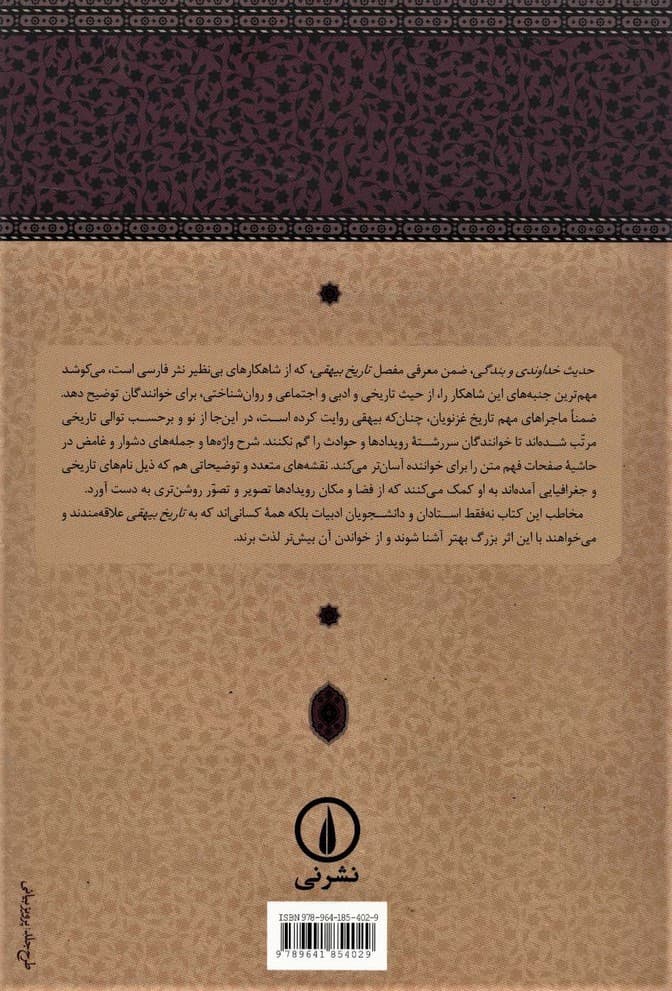 حدیث خداوندی و بندگی، ضمن معرفی مفصل تاریخ بیهقی، که از شاهکارهای بی‌نظیر نثر فارسی است، می‌کوشد
مهم‌ترین جنبه‌های این شاهکار را، از حیث تاریخی و ادبی و اجتماعی و روان‌شناختی، برای خوانندگان توضیح دهد.
ضمناً ماجراهای مهم تاریخ غزنویان، چنان‌که بیهقی روایت کرده است، در این‌جا از نو و برحسب توالی تاریخی
مرتّب شده‌اند تا خوانندگان سررشتهٔ رویدادها و حوادث را گم نکنند. شرح واژه‌ها و جمله‌های دشوار و غامض در
حاشیهٔ صفحات فهم متن را برای خواننده آسان‌تر می‌کند. نقشه‌های متعدد و توضیحاتی هم که ذیل نام‌های تاریخی
و جغرافیایی آمده‌اند به او کمک می‌کنند که از فضا و مکان رویدادها تصویر و تصوّر روشن‌تری به دست آورد.
مخاطب این کتاب نه‌فقط استادان و دانشجویان ادبیات بلکه همهٔ کسانی‌اند که به تاریخ بیهقی علاقه‌مندند و
می‌خواهند با این اثر بزرگ بهتر آشنا شوند و از خواندن آن بیش‌تر لذت برند.
نشرنی
ISBN 978-964-185-402-9
9 789641 854029
طرح جلد: پرویز بیانی